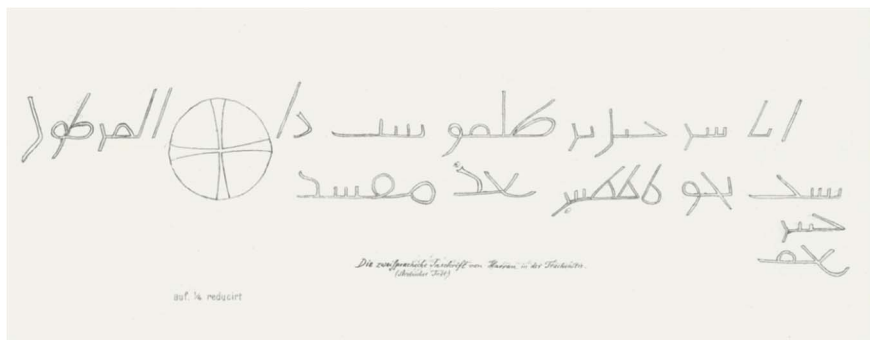 انا شرحيل بر ظلمو بنيت ذا المرطول
سنت بعد مفسد
خيبر
بعم
Die zweisprachige Inschrift von Harran in der Trachonitis.
(Arabischer Theil)
auf. ¼ reducirt